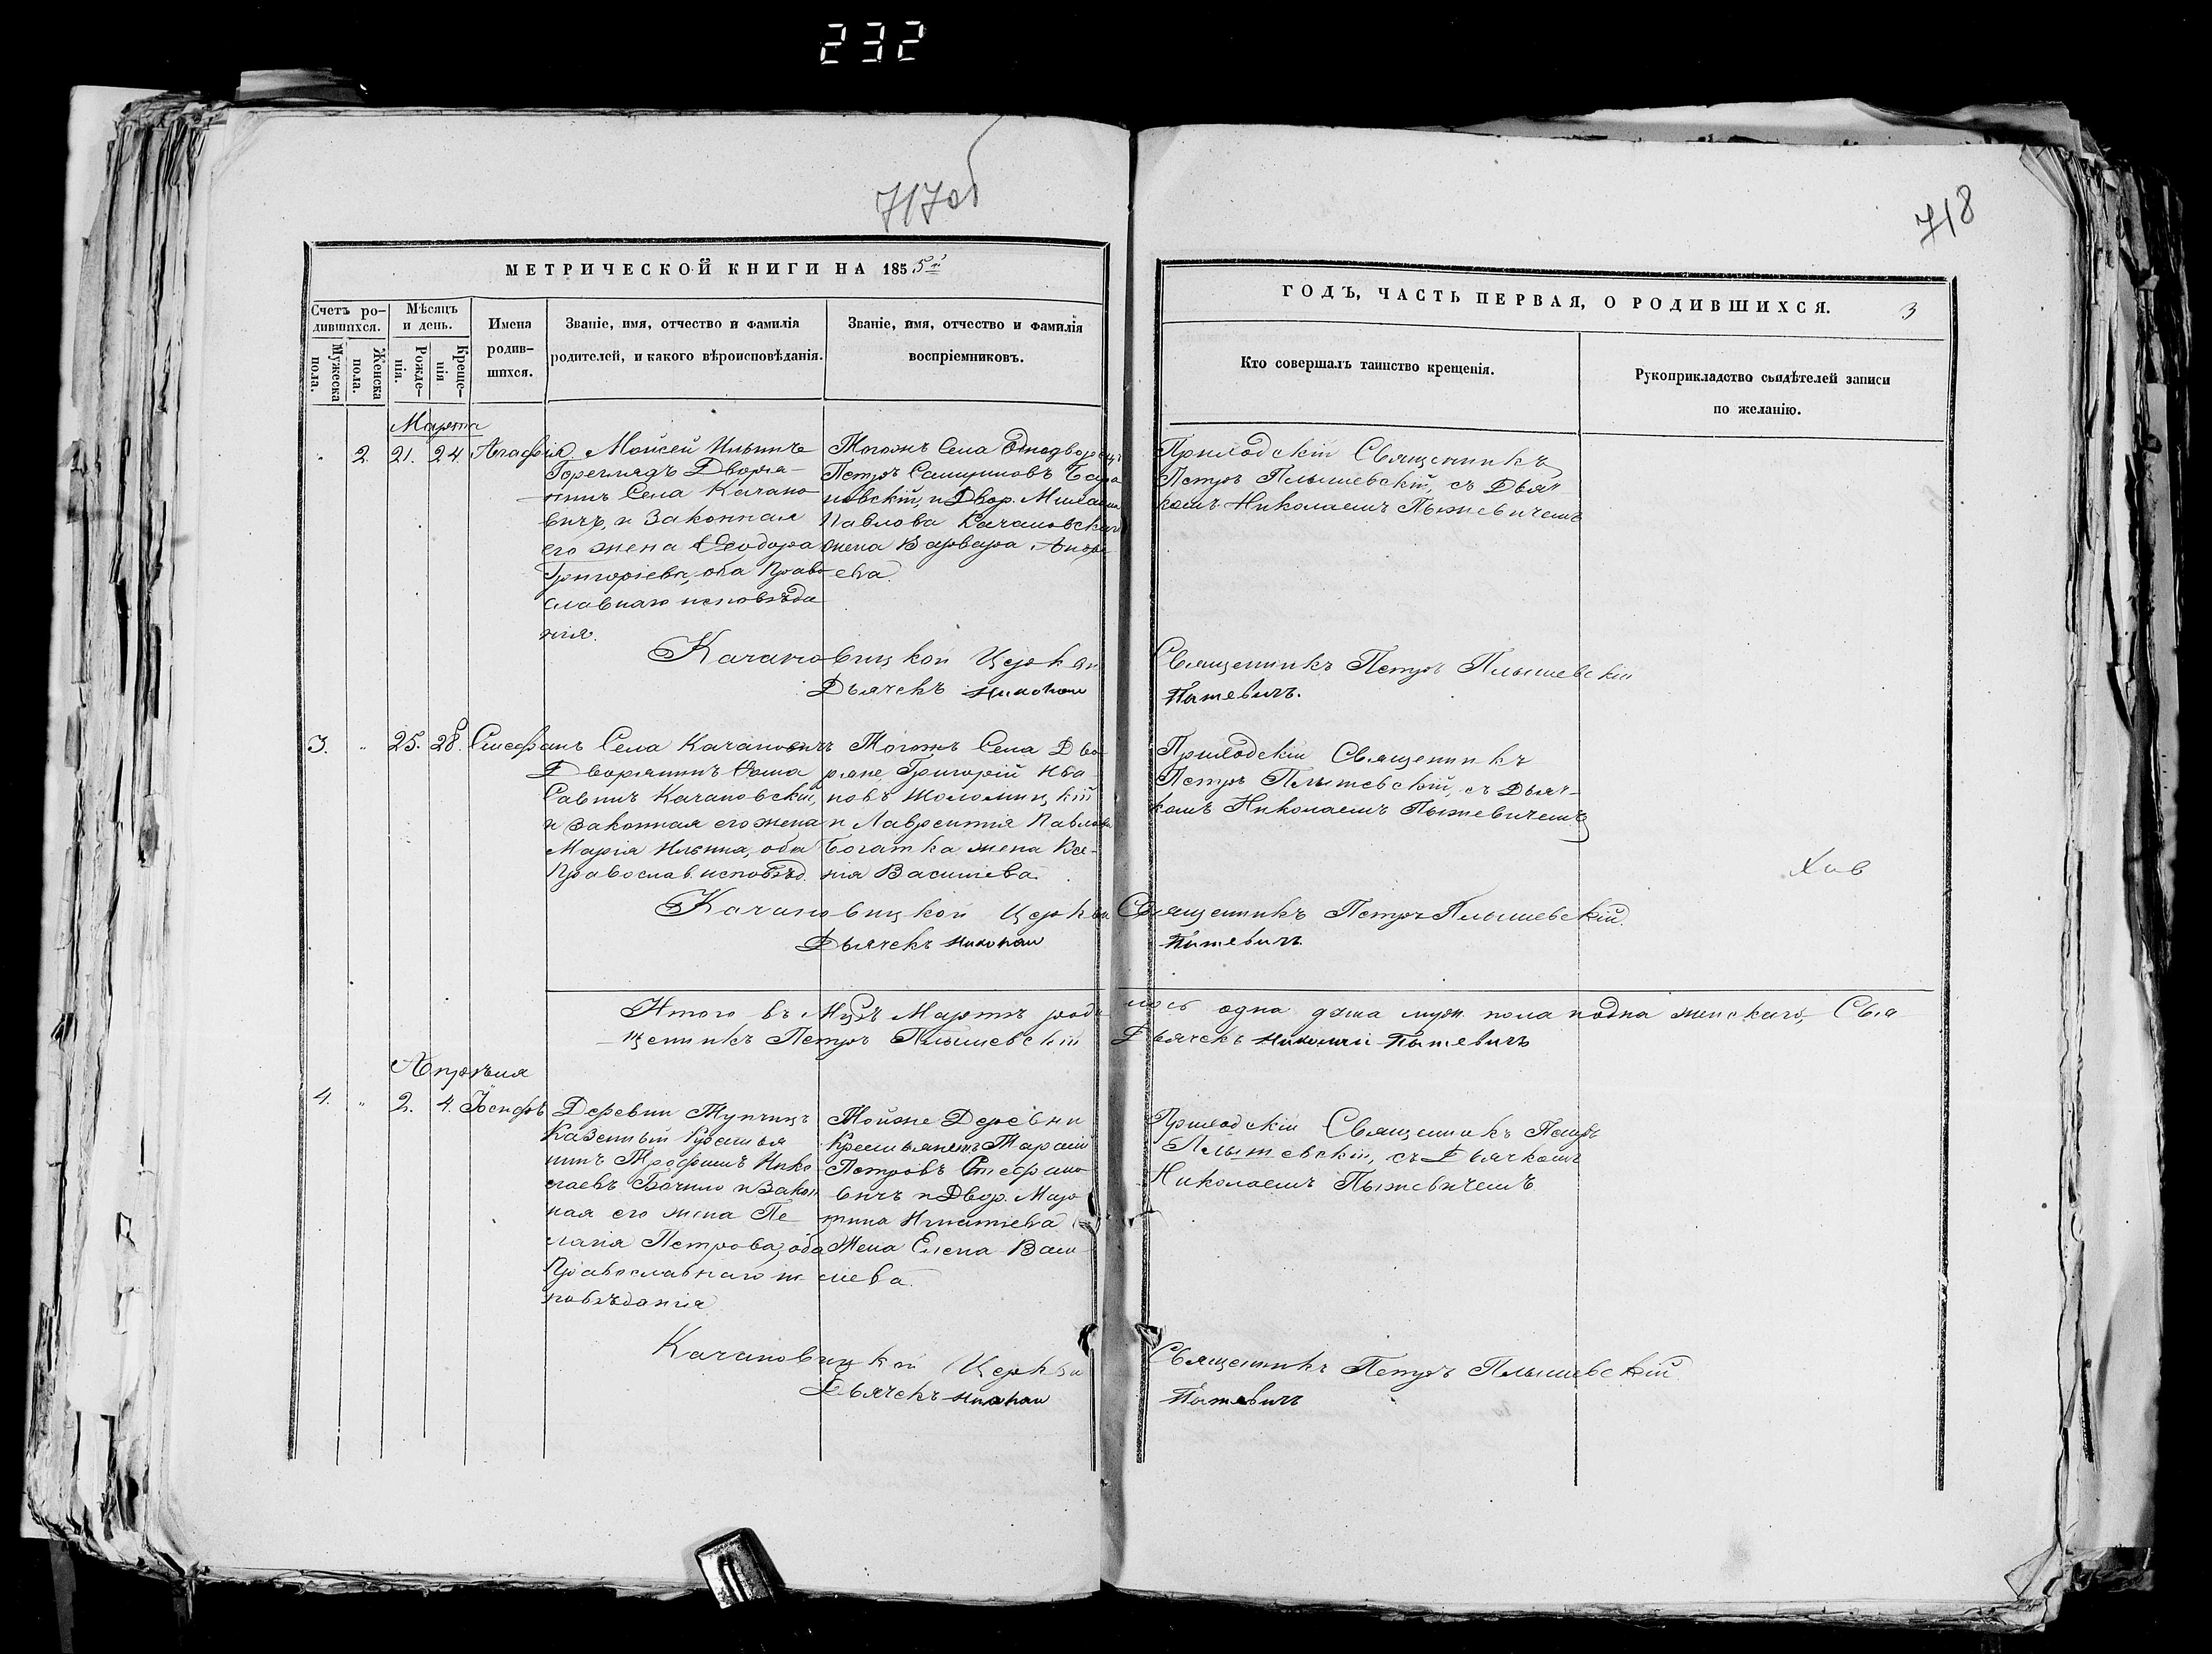 232
717об
718
МЕТРИЧЕСКОЙ КНИГИ НА 1855й
ГОДЪ, ЧАСТЬ ПЕРВАЯ, О РОДИВШИХСЯ. 3
Счетъ ро-
дившихся.
Мужеска
пола.
Женска
пола.
Мѣсяцъ
и день.
Рожде-
нія.
Креще-
нія
Имена
родив-
шихся.
Званіе, имя, отчество и фамилія
родителей, и какого вѣроисповѣданія.
Званіе, имя, отчество и фамилія
воспріемниковъ.
Кто совершалъ таинство крещенія.
Рукоприкладство свидѣтелей записи
по желанію.
Марта
2. 21. 24. Агафія
Мойсей Ильинъ
Гореглядъ Дворя-
нинъ Села Качано-
вичъ, и Законная
его жена Ѳеодора
Григоріева, оба Право
славнаго исповѣда
нія.
Тогожъ Села Однодворецъ
Петръ
новскій, и Двор.
Павлова Качановскаго
жена Варвара Андре
ева.
Приходскій Священникъ
Петръ Плышевскій, съ Дьяч
комъ Николаемъ Пыжевичемъ
Качановицкой Церкви Священникъ Петръ Плышевскій
Дьячекъ Николай Пыжевичъ.
3. " 25. 28. Стефанъ
Села Качановичъ
Дворянинъ Ѳома
Савинъ Качановскій,
и Законная его жена
Марія Ильина, оба
Православ. исповѣд.
Тогожъ Села Дво
ряне Григорій Ива
новъ Шоломицкій
и Лаврентія Павлова
Богатка жена Ксе-
нія Васильева.
Приходскій Священникъ
Петръ Плышевскій, съ Дьяч-
комъ Николаемъ Пыжевичемъ
Качановицкой Церкви Священникъ Петръ Плышевскій.
Дьячекъ Николай Пыжевичъ
Итого въ Мцѣ Мартѣ роди лось одна душа муж. пола и одна женскаго, Свя
щенникъ Петръ Плышевскій Дьячекъ Николай Пыжевичъ
Апрѣля
4. " 2. 4. Іосифъ
Деревни Тупчицъ
Казенный Крестья
нинъ Трофимъ Нико
лаевъ Бочило и Закон
ная его жена Пе
лагія Петрова, оба
Православнаго ис
повѣданія
Тойже Деревни
Крестьянинъ Тарасій
Петровъ Стефано
вичъ и Двор. Мар
тина Игнатіева
Жена Елена Васи
лева.
Приходскій Священникъ Петръ
Плышевскій, съ Дьячкомъ
Николаемъ Пыжевичемъ
Качановицкой Церкви Священникъ Петръ Плышевскій.
Дьячекъ Николай Пыжевичъ